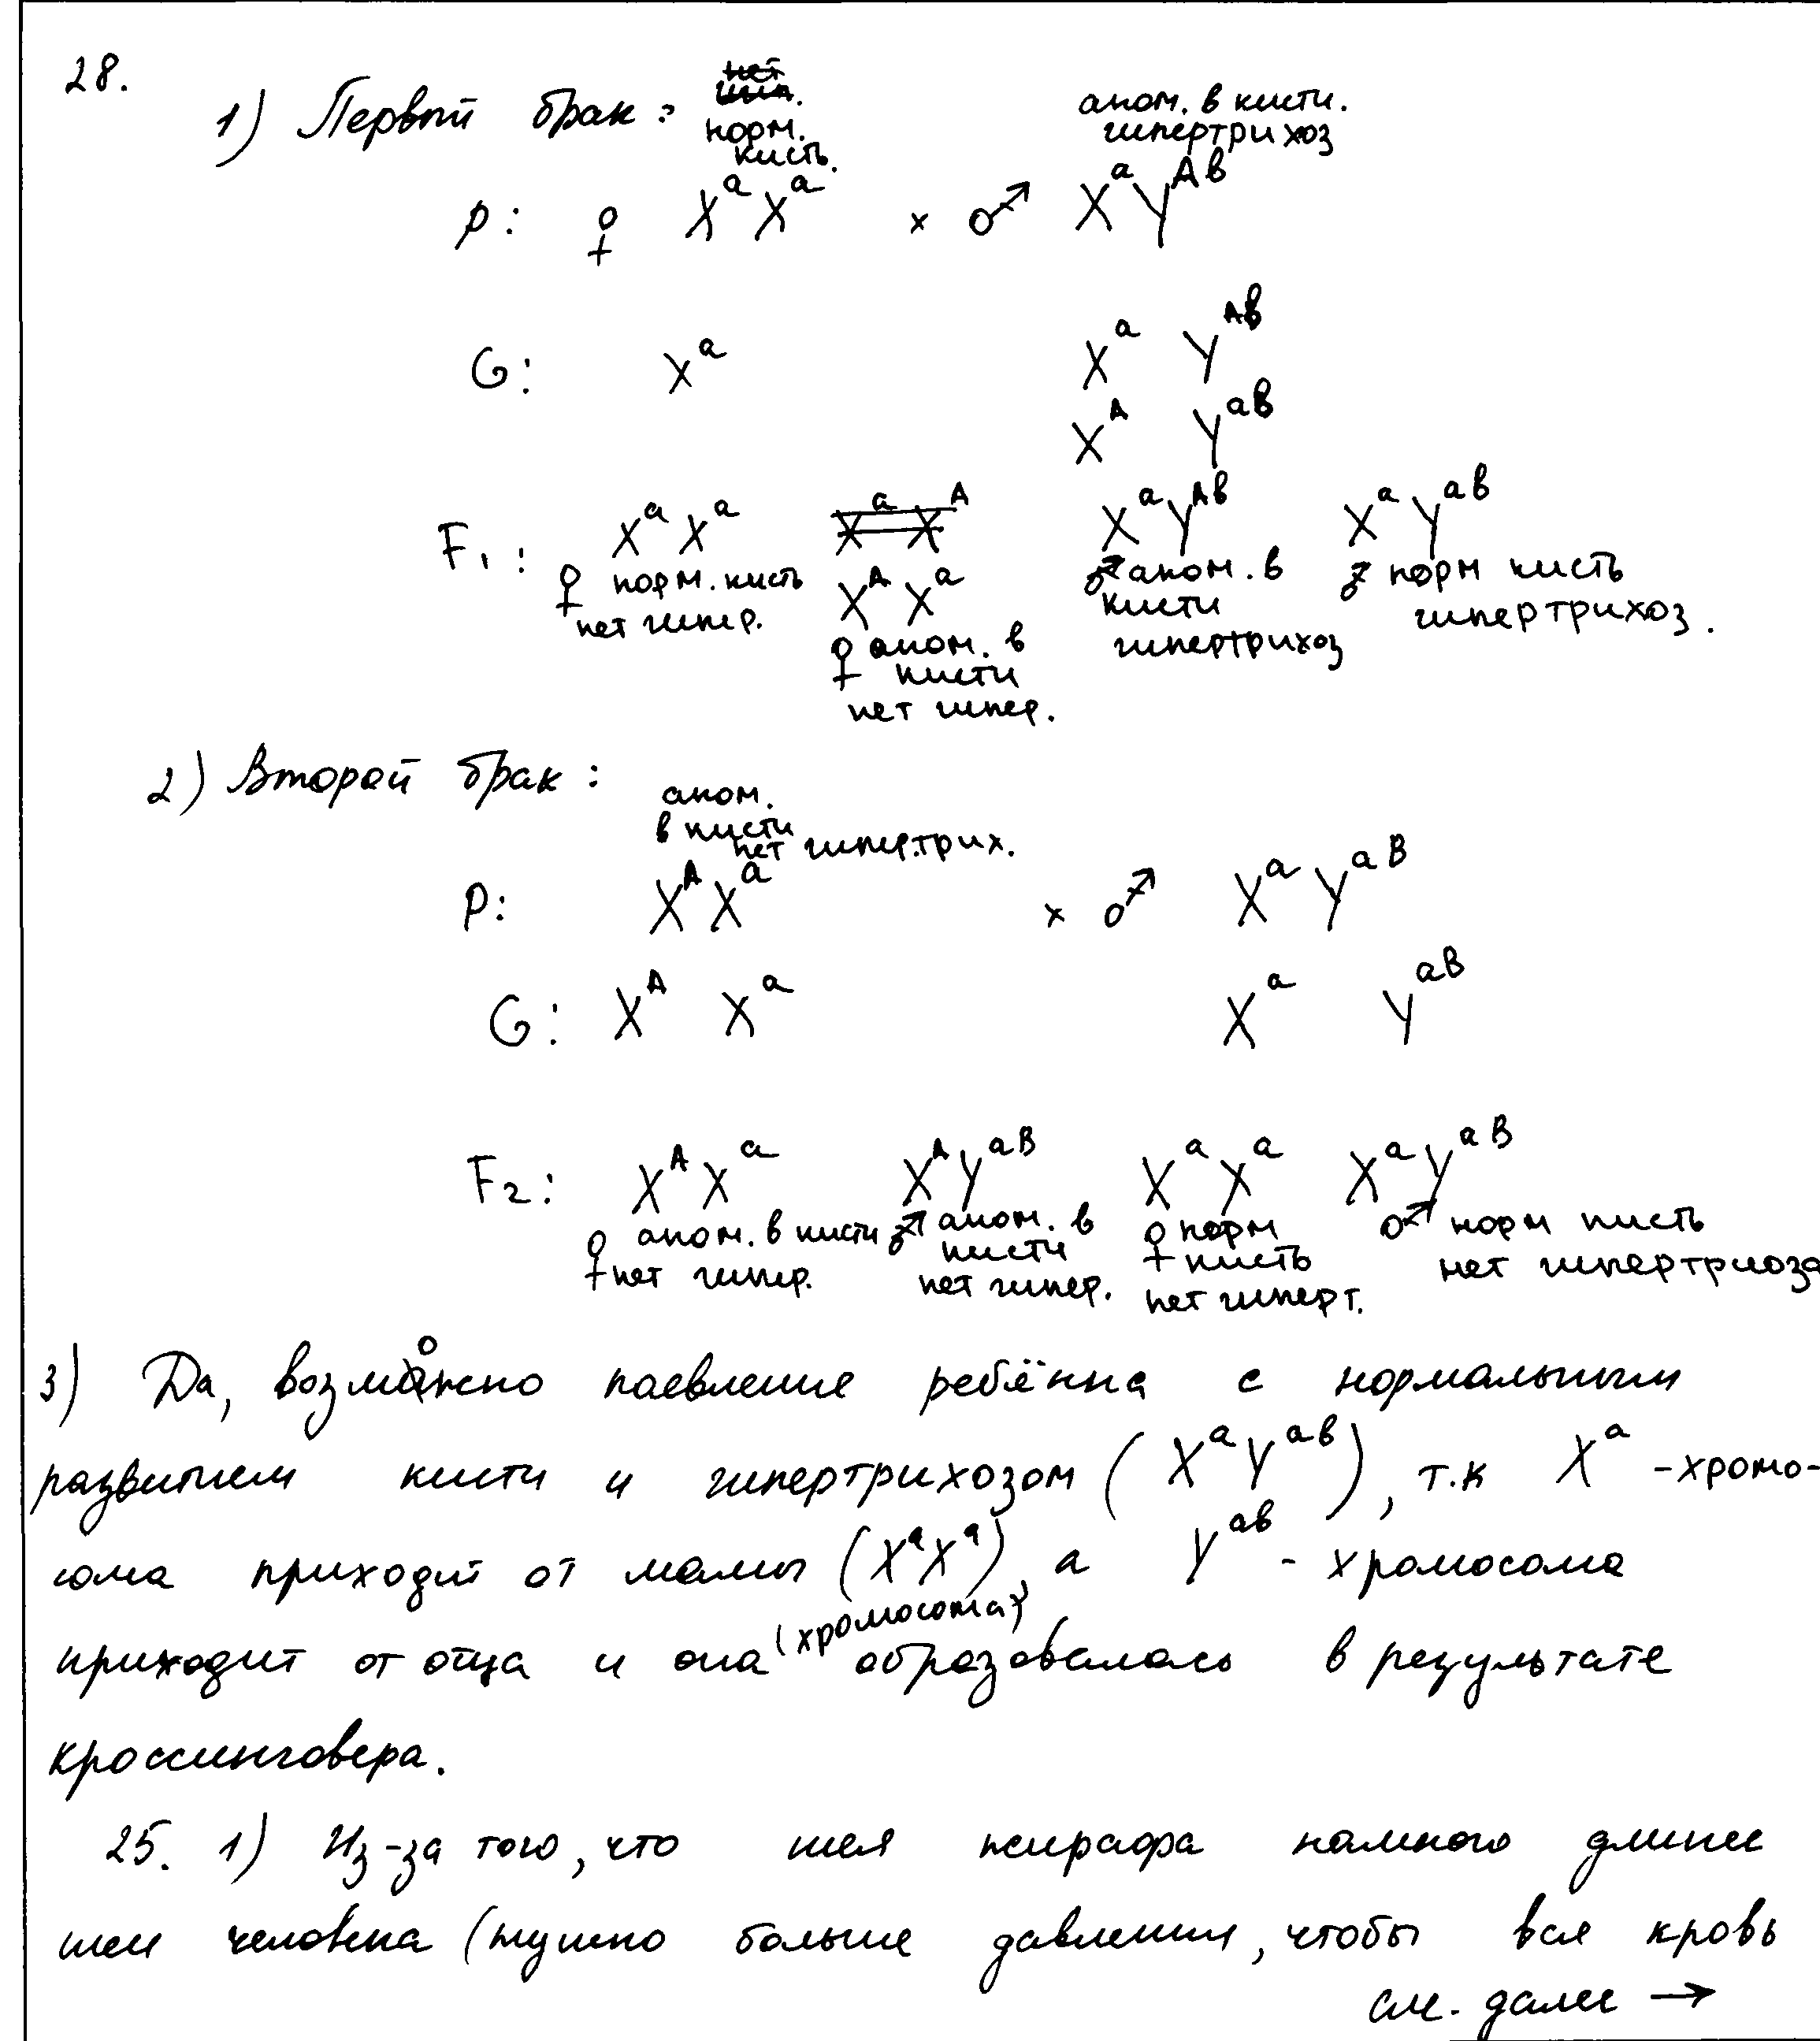 28.
1) Первый брак:
норм.
кисть.
аном. в кисти.
гипертрихоз
P: ♀ XᵃXᵃ × ♂ XᵃYᴬᵇ
G: Xᵃ Xᵃ Yᴬᵇ
Xᴬ Yᵃᵇ
F₁: XᵃXᵃ XᴬXᵃ XᵃYᴬᵇ XᵃYᵃᵇ
♀ норм. кисть
нет гипер.
♀ аном. в
кисти
нет гипер.
♂ аном. в
кисти
гипертрихоз
♂ норм кисть
гипертрихоз.
2) Второй брак:
аном.
в кисти
нет гипертрих.
P: XᴬXᵃ × ♂ XᵃYᵃᴮ
G: Xᴬ Xᵃ Xᵃ Yᵃᴮ
F₂: XᴬXᵃ XᴬYᵃᴮ XᵃXᵃ XᵃYᵃᴮ
♀ аном. в кисти
нет гипер.
♂ аном. в
кисти
нет гипер.
♀ норм
кисть
нет гиперт.
♂ норм кисть
нет гипертриоза
3) Да, возможно паевление ребёнка с нормальным
развитием кисти и гипертрихозом (XᵃYᵃᵇ), т.к Xᵃ -хромо-
сома приходит от мамы (XᵃXᵃ), а Yᵃᵇ - хромосома
приходит от отца и она (хромосома Y) образовалась в результате
кроссинговера.
25. 1) Из-за того, что шея жирафа намного длинее
шеи человека (нужно больше давления, чтобы вся кровь
см. далее →